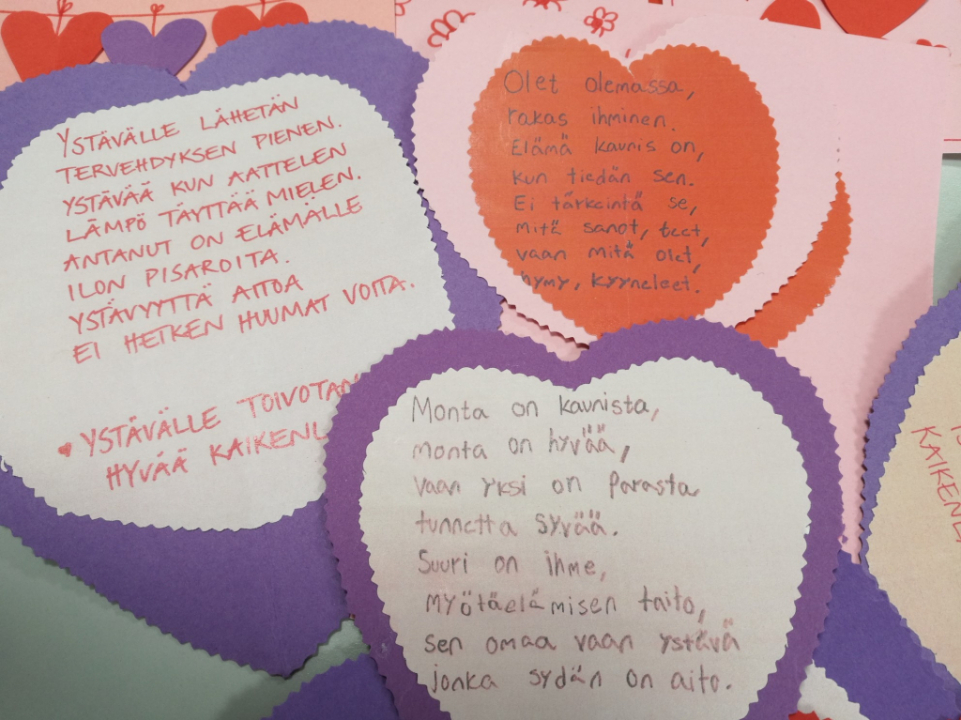 YSTÄVÄLLE LÄHETÄN
TERVEHDYKSEN PIENEN.
YSTÄVÄÄ KUN AATTELEN
LÄMPÖ TÄYTTÄÄ MIELEN.
ANTANUT ON ELÄMÄLLE
ILON PISAROITA.
YSTÄVYYTTÄ AITOA
EI HETKEN HUUMAT VOITA.
♥ YSTÄVÄLLE
HYVÄÄ
Olet olemassa,
rakas ihminen.
Elämä kaunis on,
kun tiedän sen.
Ei tärkeintä se,
mitä sanot, teet,
vaan mitä olet,
hymy, kyyneleet.
Monta on kaunista,
monta on hyvää,
vaan yksi on parasta
tunnetta syvää.
Suuri on ihme,
myötäelämisen taito,
sen omaa vaan ystävä
jonka sydän on aito.